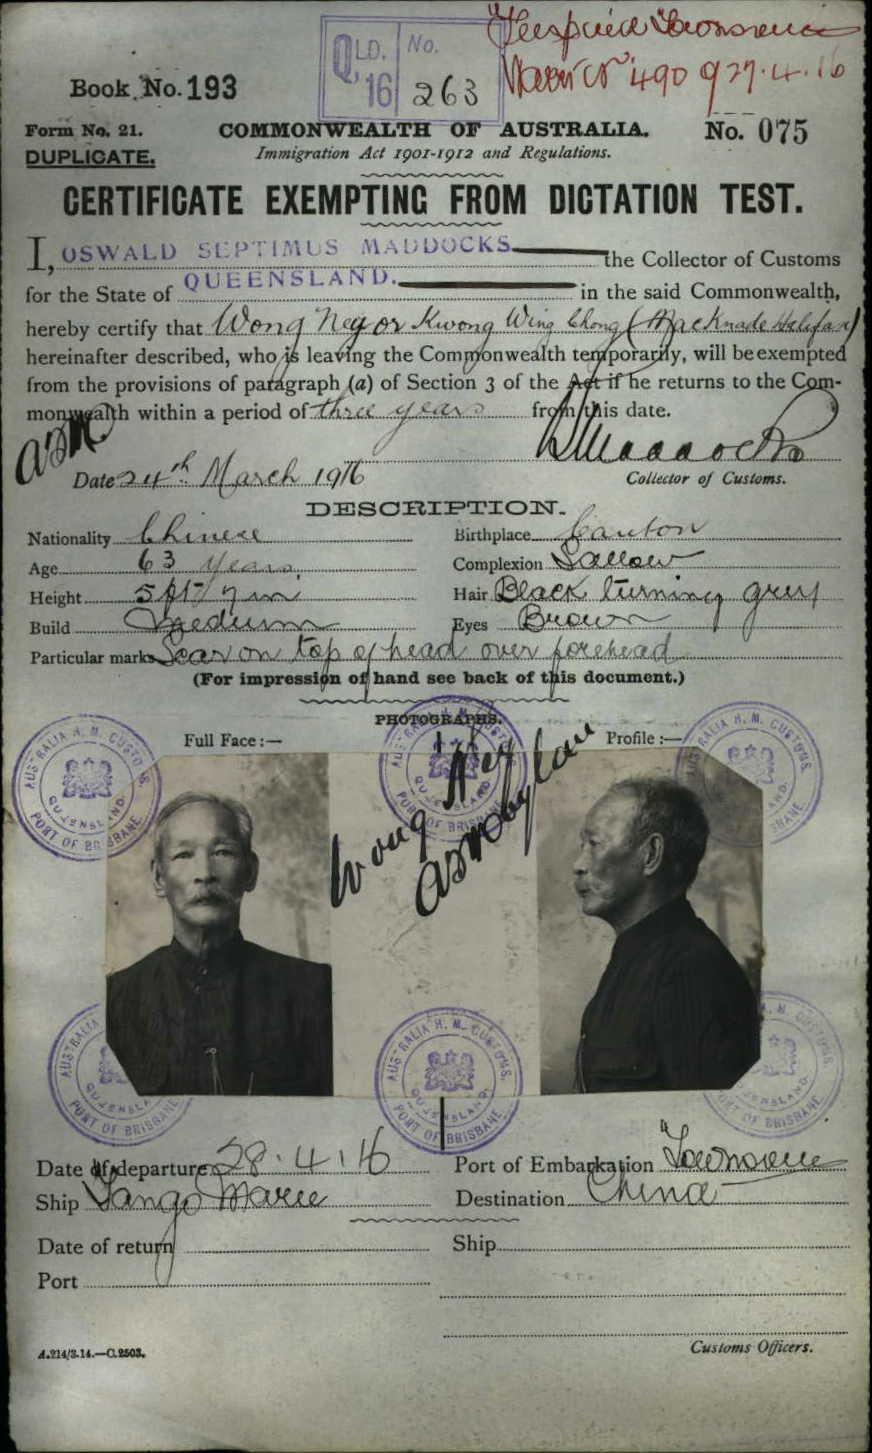 QLD. No.
16 263
490 9 27.4.16
Book No. 193
Form No. 21. COMMONWEALTH OF AUSTRALIA. No. 075
DUPLICATE. Immigration Act 1901-1912 and Regulations.
CERTIFICATE EXEMPTING FROM DICTATION TEST.
I, OSWALD SEPTIMUS MADDOCKS the Collector of Customs
for the State of QUEENSLAND. in the said Commonwealth,
hereby certify that Wong Ney or Kwong Wing Chong (Macknade Halifax)
hereinafter described, who is leaving the Commonwealth temporarily, will be exempted
from the provisions of paragraph (a) of Section 3 of the Act if he returns to the Com-
monwealth within a period of three years from this date.
Date 24th March 1916 Collector of Customs.
DESCRIPTION.
Nationality Chinese Birthplace Canton
Age 63 years. Complexion Sallow
Height 5 ft 7 in Hair Black turning grey
Build Medium Eyes Brown
Particular marks Scar on top of head over forehead
(For impression of hand see back of this document.)
PHOTOGRAPHS.
Full Face :— Profile :—
AUSTRALIA H. M. CUSTOMS. QUEENSLAND. PORT OF BRISBANE
Wong Ney
Date of departure 28.4.16 Port of Embarkation Townsville
Ship Tango Marue Destination China
Date of return Ship
Port
A.214/3.14.—C.2503. Customs Officers.